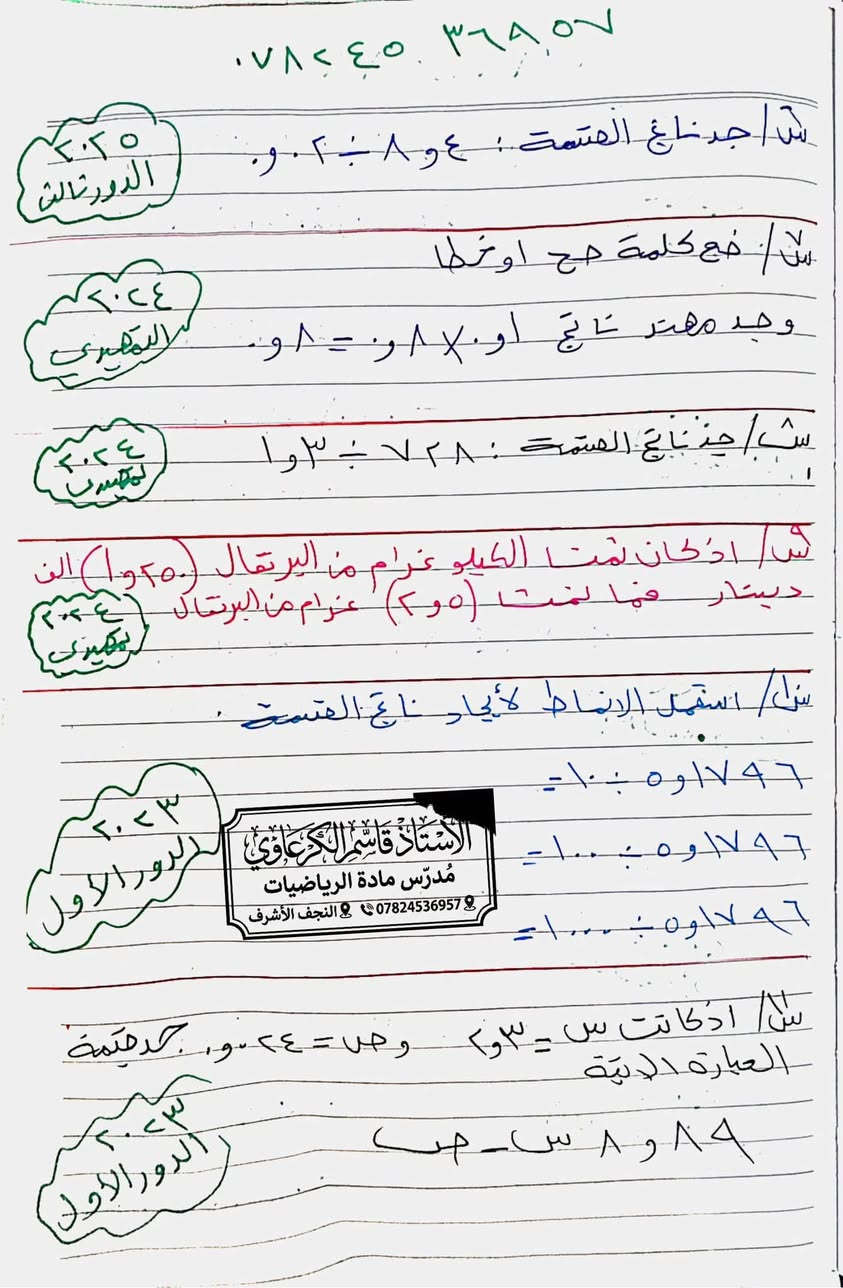 ٠٧٨٢٤٥٣٦٩٥٧
س٦/ جد ناتج القسمة : ٤و٨ ÷ ٠٢و٠
٢٠٢٥
الدور ثالث
س٧/ ضع كلمة صح او خطا
وجد مهند ناتج ١و٠ × ٨و٠ = ٨و٠
٢٠٢٤
التمهيدي
س٨/ جد ناتج القسمة : ٧٢٨ ÷ ٣و١
٢٠٢٤
تمهيدي
س٩/ اذ كان ثمن الكيلو غرام من البرتقال (٢٥٠و١) الف
دينار فما ثمن (٥و٢) غرام من البرتقال
٢٠٢٤
تمهيدي
س١٠/ استعمل الانماط لأيجاد ناتج القسمة .
١٧٩٦و٥ ÷ ١٠ =
١٧٩٦و٥ ÷ ١٠٠ =
١٧٩٦و٥ ÷ ١٠٠٠ =
٢٠٢٣
الدور الاول
الأستاذ قاسم الكرعاوي
مُدرّس مادة الرياضيات
07824536957 النجف الأشرف
س١١/ اذ كانت س = ٣و٢ وص = ٠٢٤و٠ جد قيمة
العبارة الاتية
٨٩و٨ س - ص
٢٠٢٣
الدور الاول